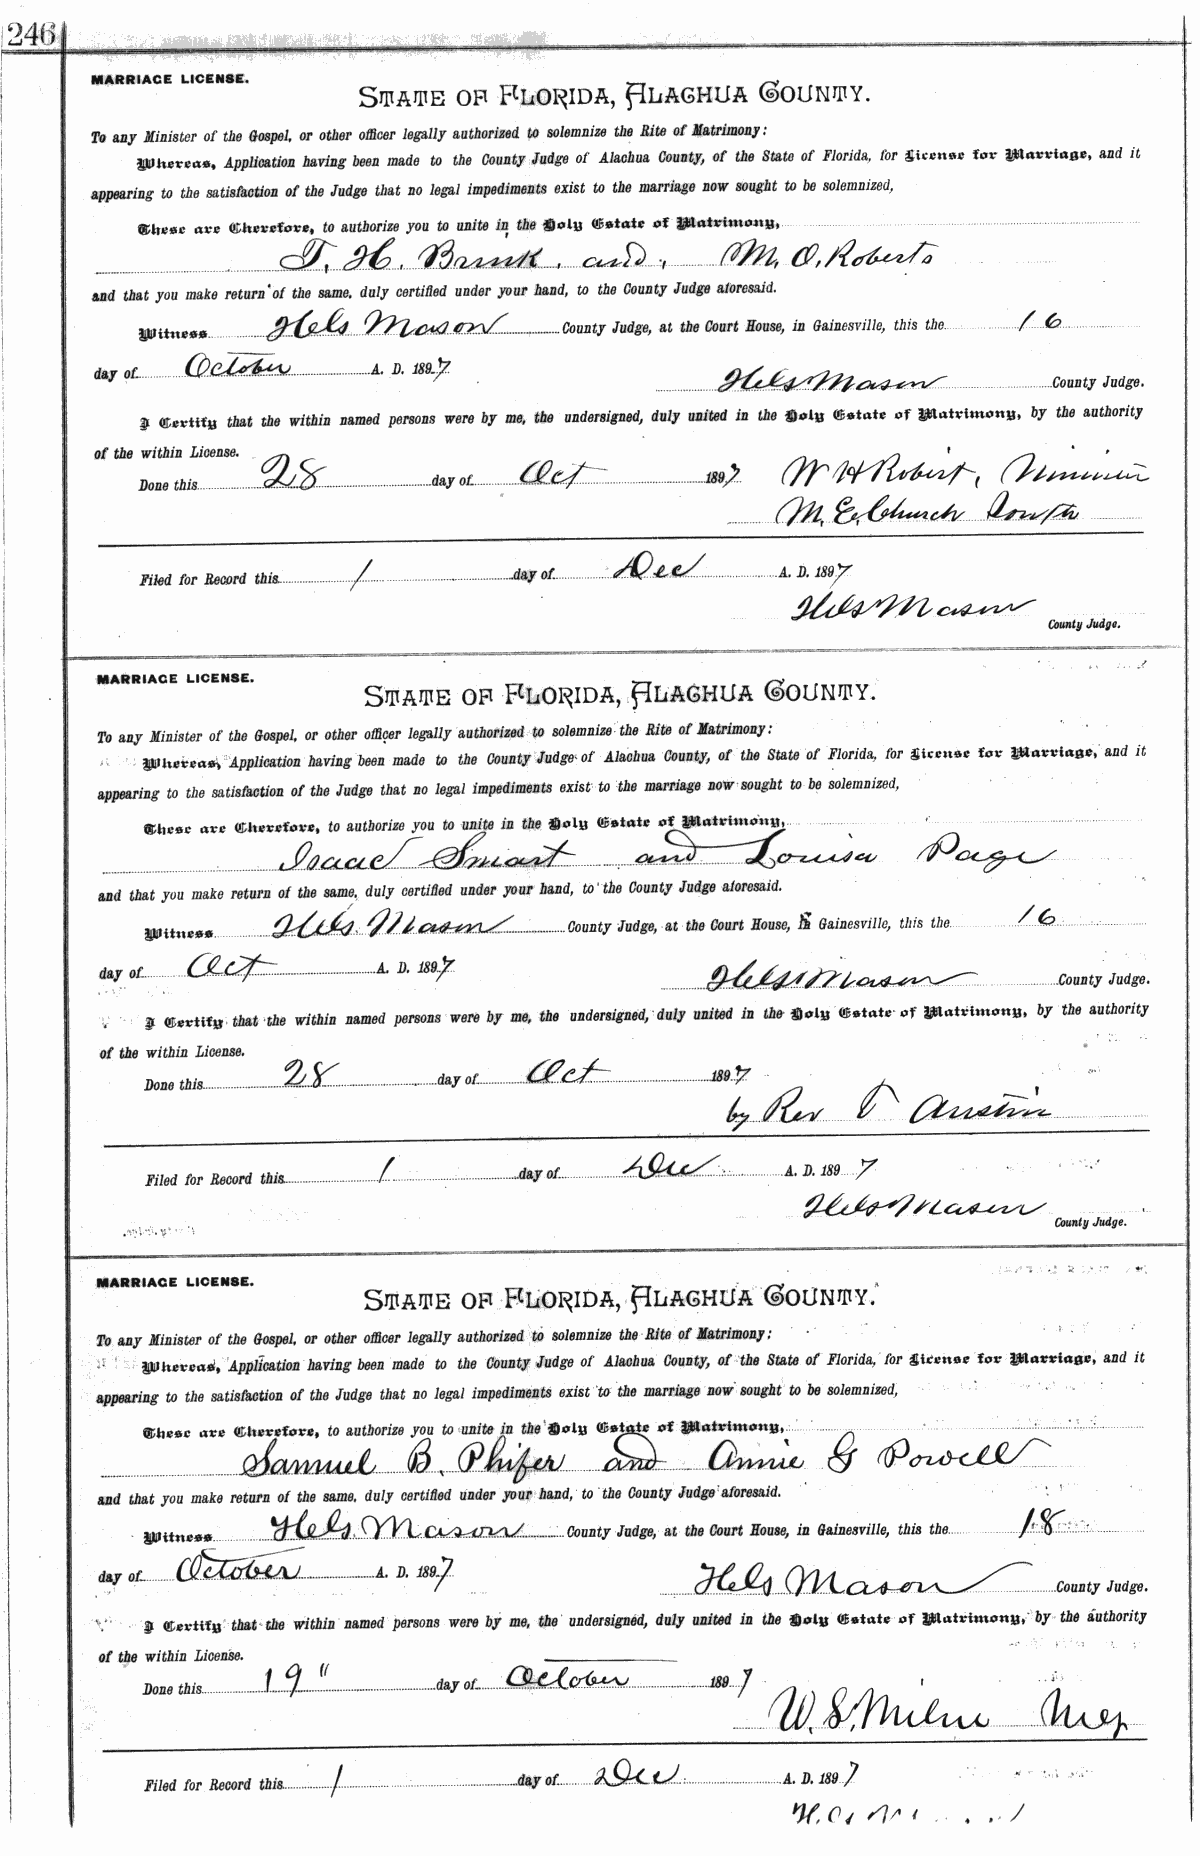 246
MARRIAGE LICENSE.
STATE OF FLORIDA, ALACHUA COUNTY.
To any Minister of the Gospel, or other officer legally authorized to solemnize the Rite of Matrimony:
Whereas, Application having been made to the County Judge of Alachua County, of the State of Florida, for License for Marriage, and it
appearing to the satisfaction of the Judge that no legal impediments exist to the marriage now sought to be solemnized,
These are Therefore, to authorize you to unite in the Holy Estate of Matrimony,
T. H. Brink. and, M. O. Roberts
and that you make return of the same, duly certified under your hand, to the County Judge aforesaid.
Witness Hels Mason County Judge, at the Court House, in Gainesville, this the 16
day of October A. D. 1897
Hels Mason County Judge.
I Certify that the within named persons were by me, the undersigned, duly united in the Holy Estate of Matrimony, by the authority
of the within License.
Done this 28 day of Oct 1897 W H Robert, Minister
M. E. Church South
Filed for Record this 1 day of Dec A. D. 1897
Hels Mason
County Judge.
MARRIAGE LICENSE.
STATE OF FLORIDA, ALACHUA COUNTY.
To any Minister of the Gospel, or other officer legally authorized to solemnize the Rite of Matrimony:
Whereas, Application having been made to the County Judge of Alachua County, of the State of Florida, for License for Marriage, and it
appearing to the satisfaction of the Judge that no legal impediments exist to the marriage now sought to be solemnized,
These are Therefore, to authorize you to unite in the Holy Estate of Matrimony,
Isaac Smart and Louisa Page
and that you make return of the same, duly certified under your hand, to the County Judge aforesaid.
Witness Hels Mason County Judge, at the Court House, in Gainesville, this the 16
day of Oct A. D. 1897
Hels Mason County Judge.
I Certify that the within named persons were by me, the undersigned, duly united in the Holy Estate of Matrimony, by the authority
of the within License.
Done this 28 day of Oct 1897
by Rev T Austin
Filed for Record this 1 day of Dec A. D. 1897
Hels Mason
County Judge.
MARRIAGE LICENSE.
STATE OF FLORIDA, ALACHUA COUNTY.
To any Minister of the Gospel, or other officer legally authorized to solemnize the Rite of Matrimony:
Whereas, Application having been made to the County Judge of Alachua County, of the State of Florida, for License for Marriage, and it
appearing to the satisfaction of the Judge that no legal impediments exist to the marriage now sought to be solemnized,
These are Therefore, to authorize you to unite in the Holy Estate of Matrimony,
Samuel B. Phifer and Annie G Powell
and that you make return of the same, duly certified under your hand, to the County Judge aforesaid.
Witness Hels Mason County Judge, at the Court House, in Gainesville, this the 18
day of October A. D. 1897
Hels Mason County Judge.
I Certify that the within named persons were by me, the undersigned, duly united in the Holy Estate of Matrimony, by the authority
of the within License.
Done this 19" day of October 1897
W. S. Milne
Filed for Record this 1 day of Dec A. D. 1897